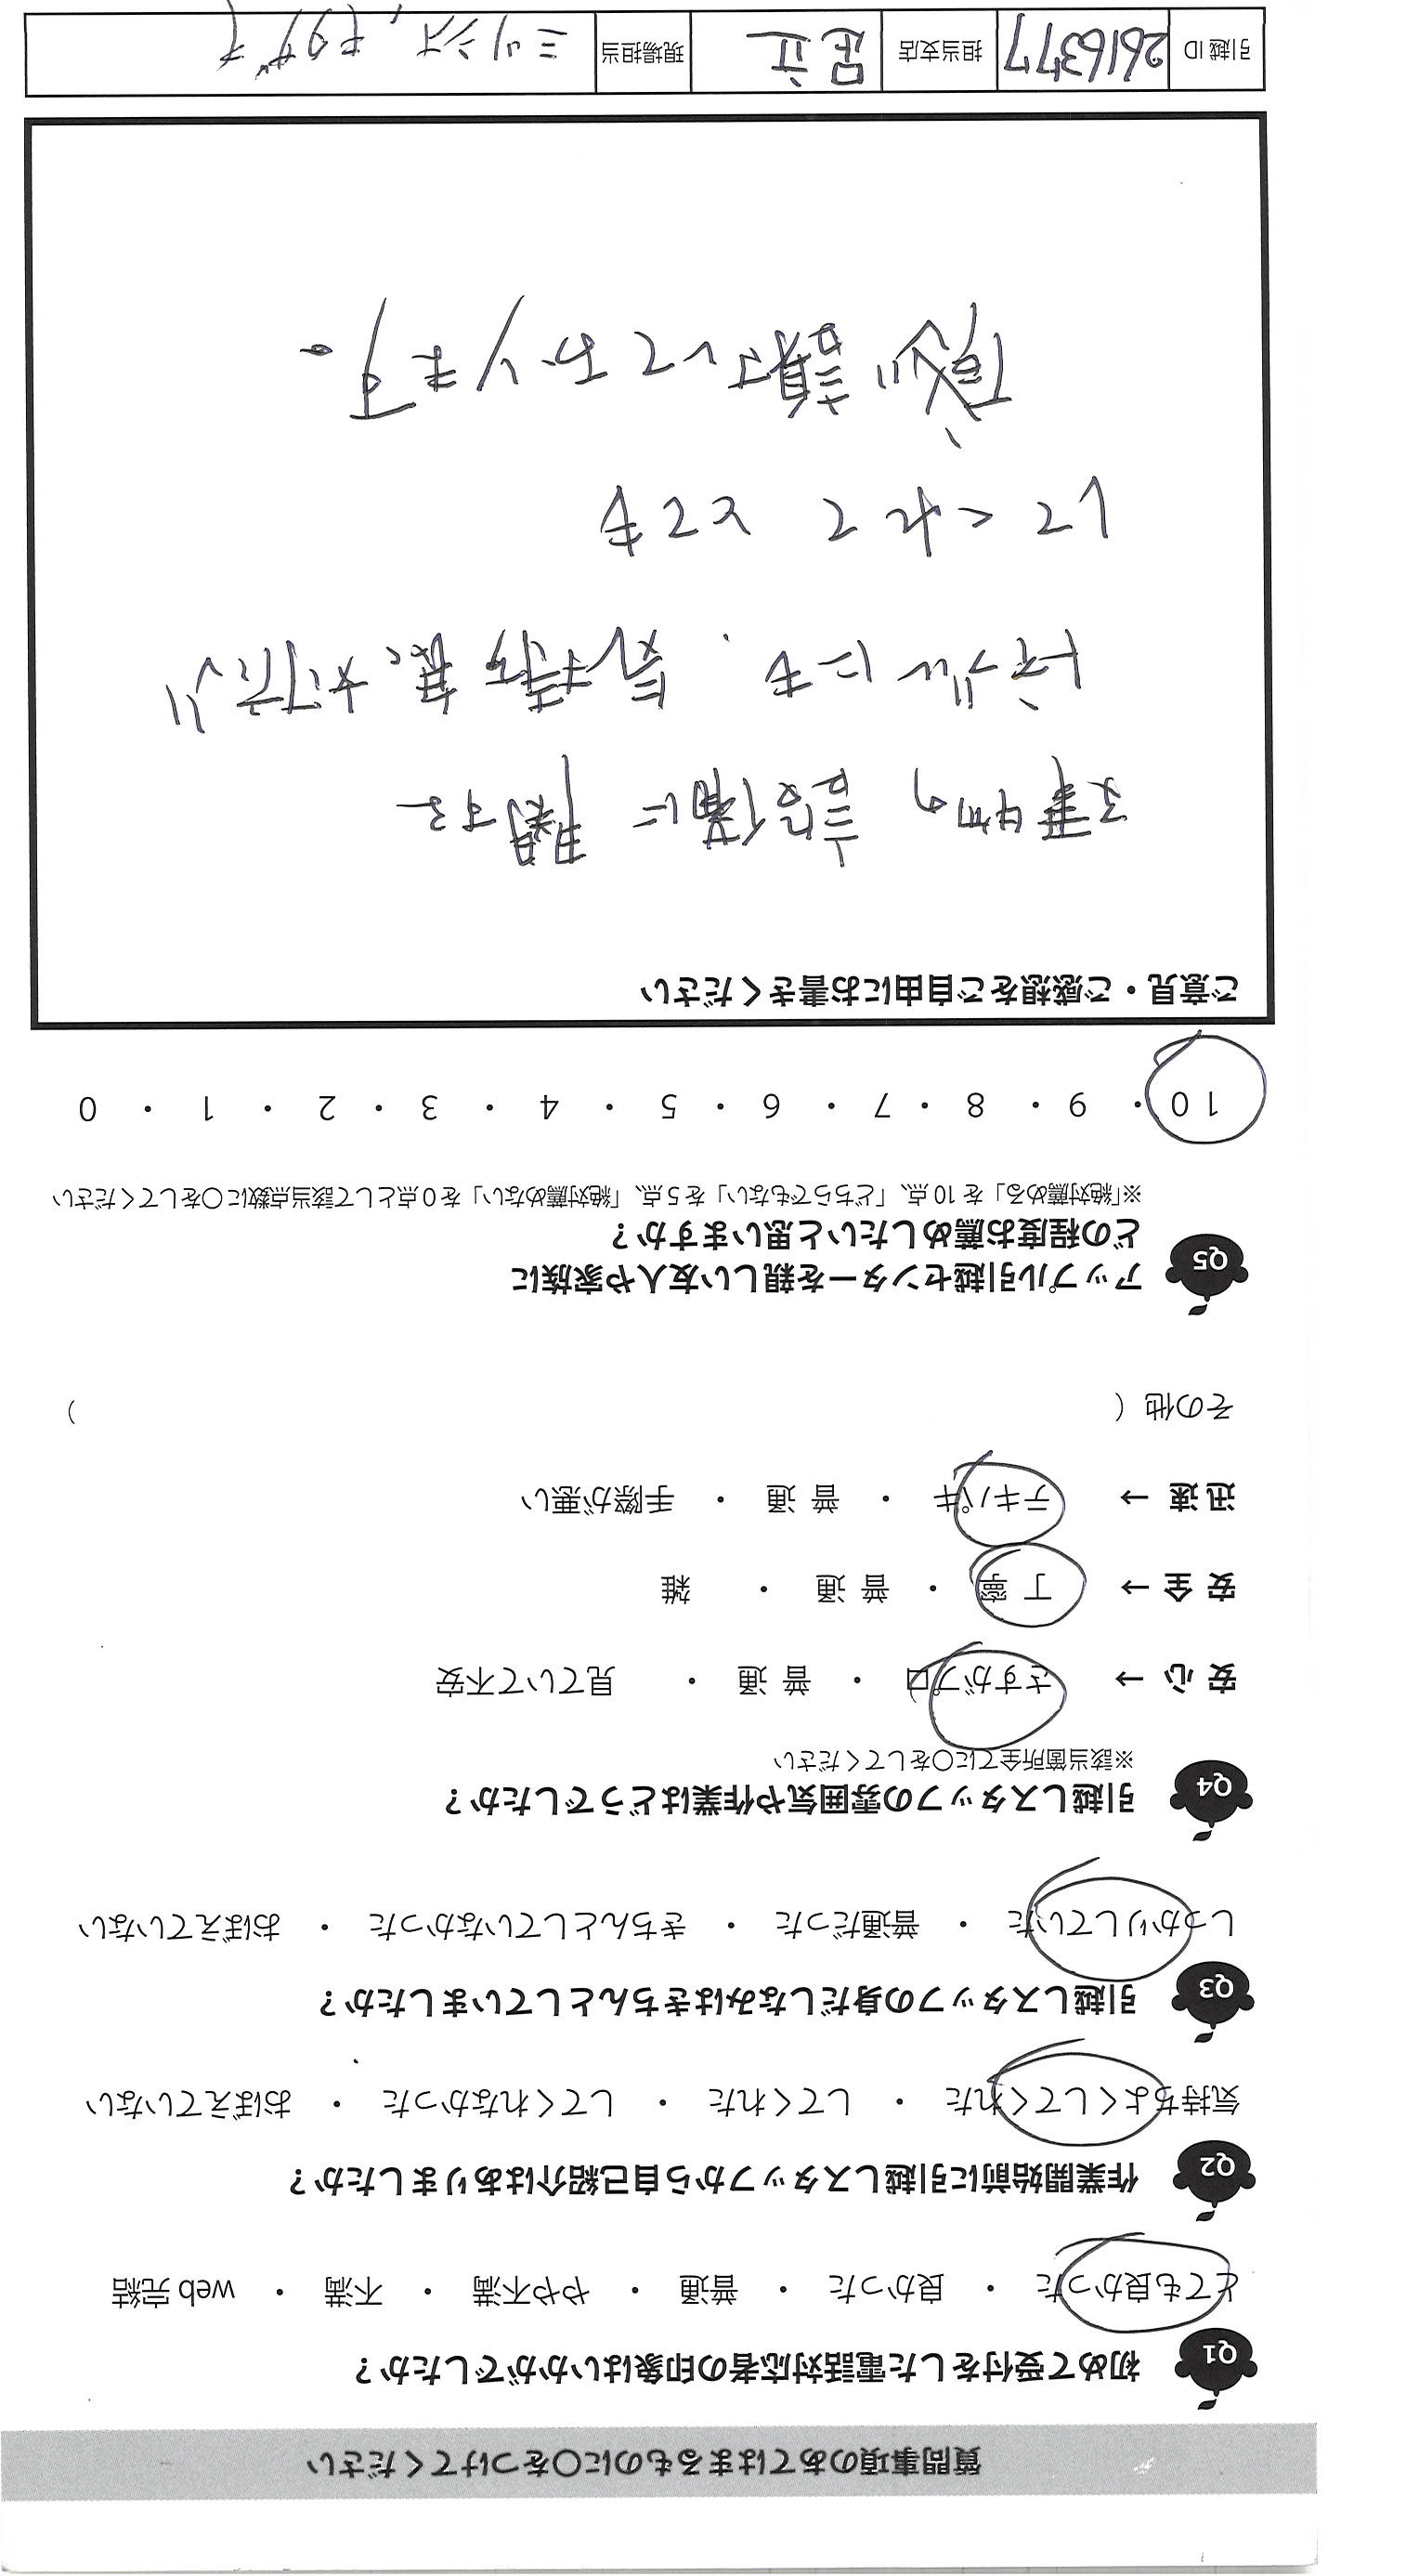 質問事項のあてはまるものに〇をつけてください
Q1 初めて受付をした電話対応者の印象はいかがでしたか？
とても良かった ・ 良かった ・ 普通 ・ やや不満 ・ 不満 ・ web 完結
Q2 作業開始前に引越しスタッフから自己紹介はありましたか？
気持ちよくしてくれた ・ してくれた ・ してくれなかった ・ おぼえていない
Q3 引越しスタッフの身だしなみはきちんとしていましたか？
しっかりしていた ・ 普通だった ・ きちんとしていなかった ・ おぼえていない
Q4 引越しスタッフの雰囲気や作業はどうでしたか？
※該当箇所全てに〇をしてください
安 心 → さすがプロ ・ 普 通 ・ 見ていて不安
安 全 → 丁 寧 ・ 普 通 ・ 雑
迅 速 → テキパキ ・ 普 通 ・ 手際が悪い
その他（ ）
Q5 アップル引越センターを親しい友人や家族に
どの程度お薦めしたいと思いますか？
※「絶対薦める」を 10 点、「どちらでもない」を 5 点、「絶対薦めない」を 0 点として該当点数に〇をしてください
10 ・ 9 ・ 8 ・ 7 ・ 6 ・ 5 ・ 4 ・ 3 ・ 2 ・ 1 ・ 0
ご意見・ご感想をご自由にお書きください
準備に関する
にも、気持
してくれて とても
感謝しております。
引越 ID 2616377 担当支店 足立 現場担当 ミツシオ,